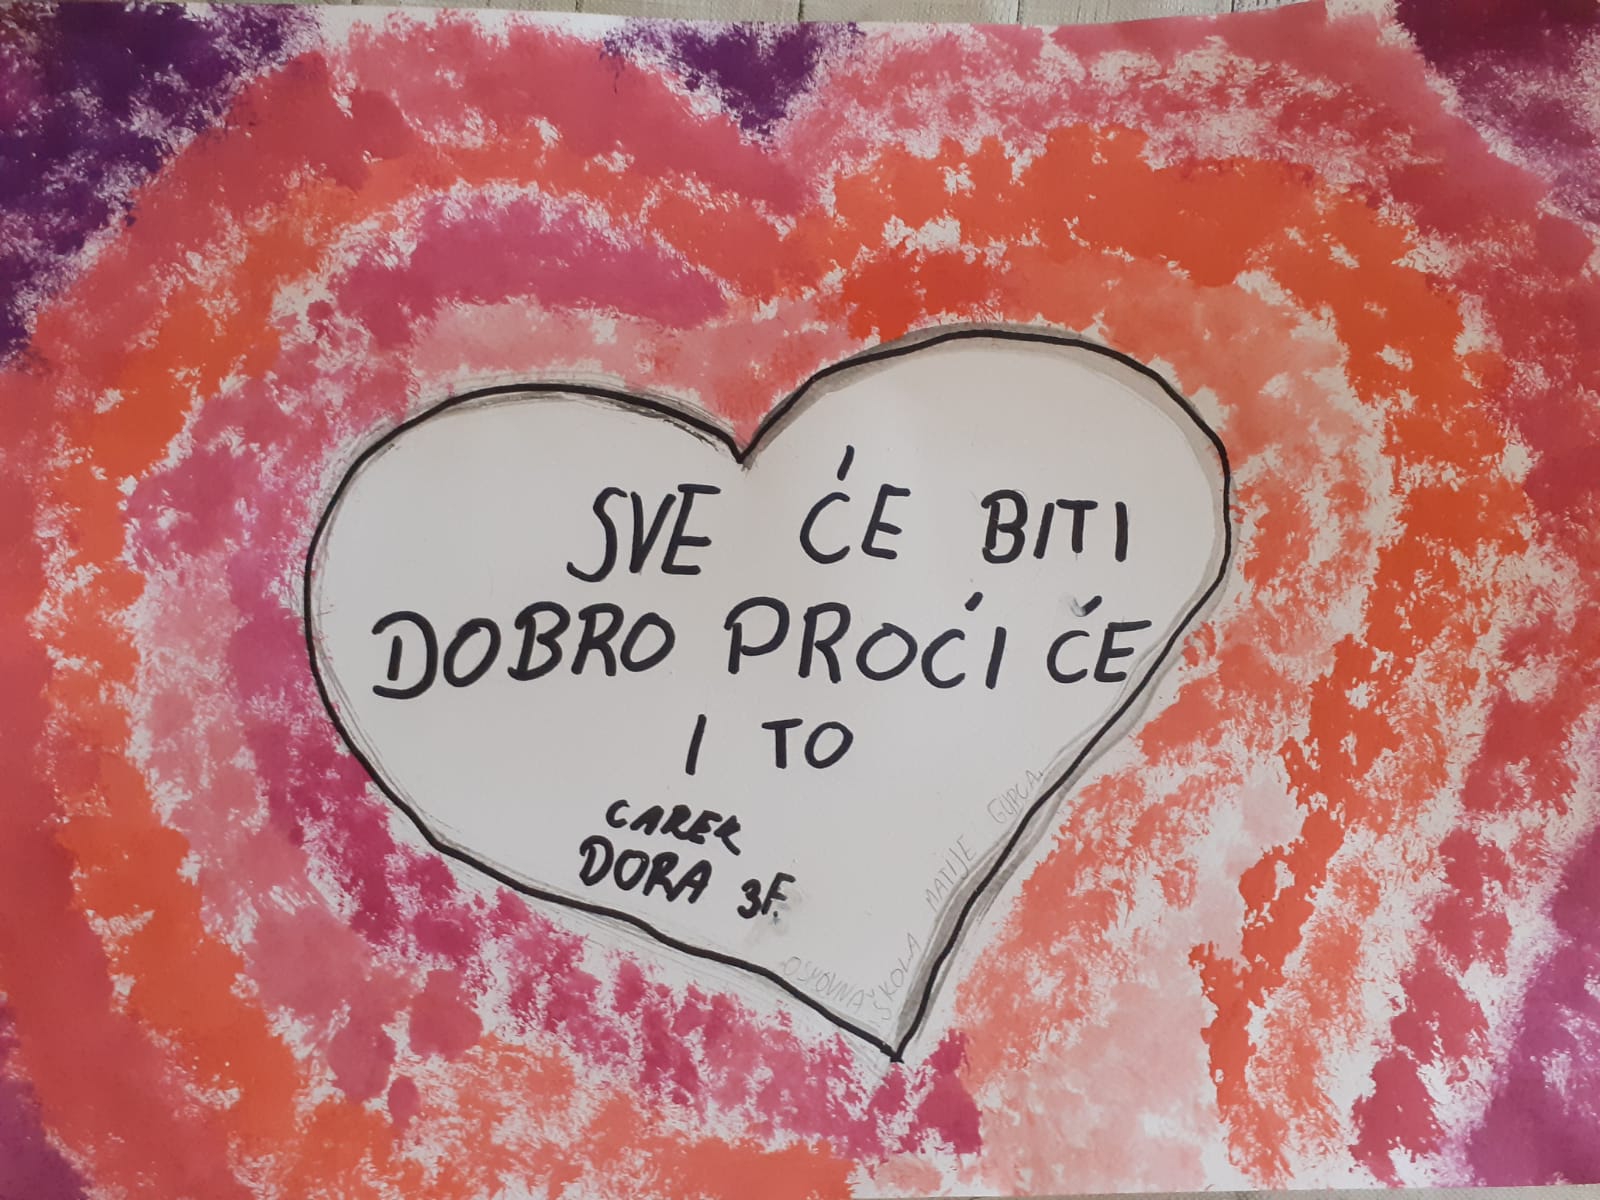 SVE ĆE BITI
DOBRO PROĆI ĆE
I TO
CAREK
DORA 3F.
OSNOVNA ŠKOLA
MATIJE GUPCA